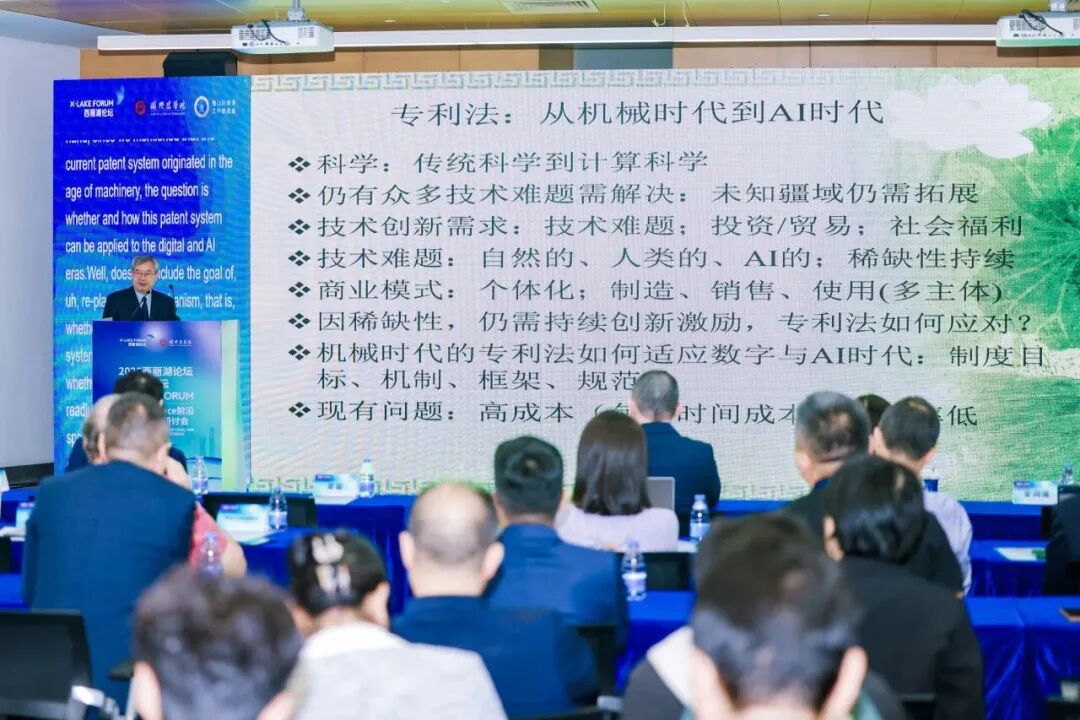 X-LAKE FORUM
西丽湖论坛
current patent system originated in the
age of machinery, the question is
whether and how this patent system
can be applied to the digital and AI
eras.Well, does
clude the goal of,
uh, re-pla
anism, that is,
专利法：从机械时代到AI时代
❖ 科学：传统科学到计算科学
❖ 仍有众多技术难题需解决：未知疆域仍需拓展
❖ 技术创新需求：技术难题；投资/贸易；社会福利
❖ 技术难题：自然的、人类的、AI的；稀缺性持续
❖ 商业模式：个体化；制造、销售、使用(多主体)
❖ 因稀缺性，仍需持续创新激励，专利法如何应对？
❖ 机械时代的专利法如何适应数字与AI时代：制度目
标、机制、框架、规范
❖ 现有问题：高成本（
时间成本
低
西丽湖论坛
ORUM